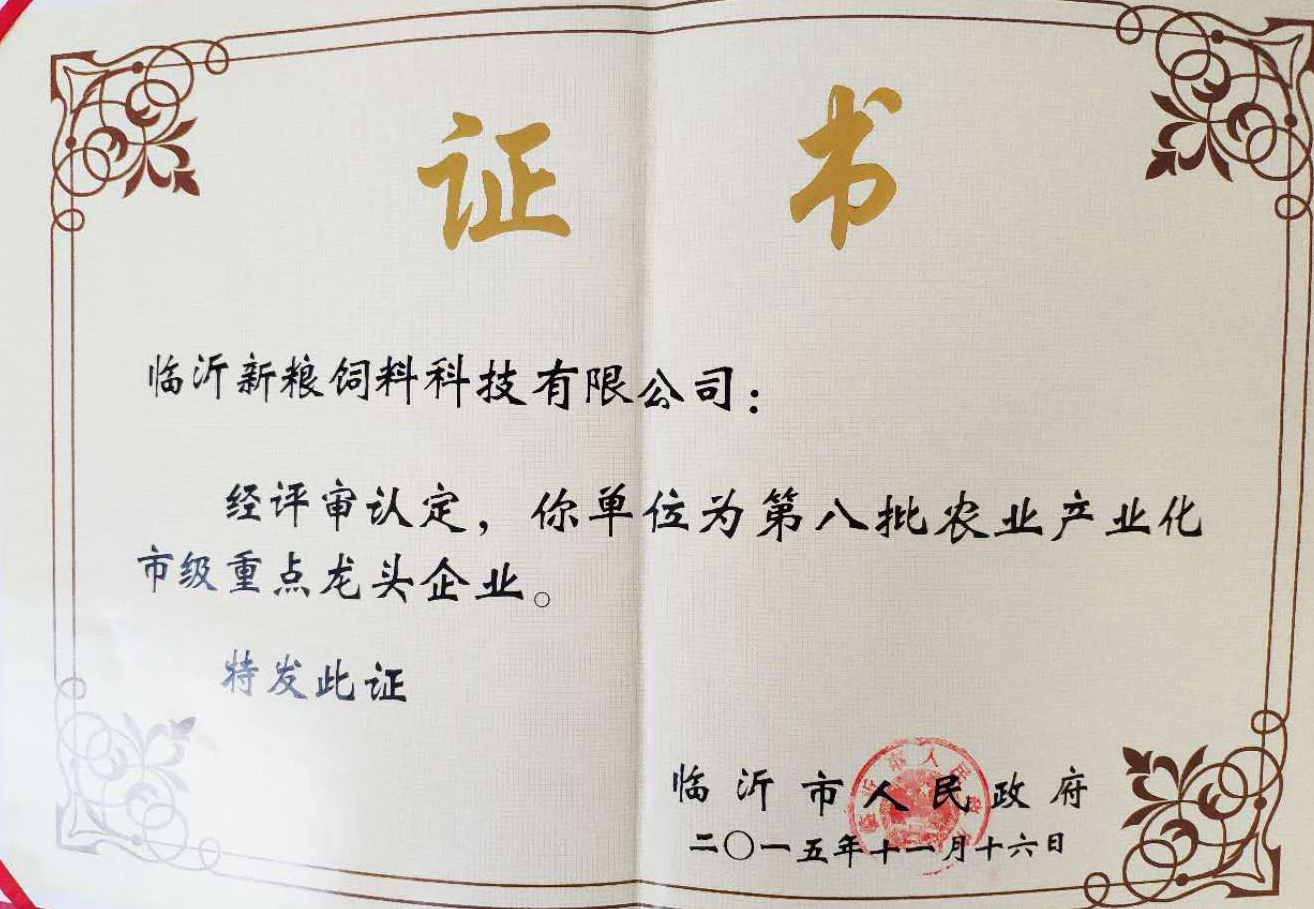 证 书
临沂新粮饲料科技有限公司：
经评审认定，你单位为第八批农业产业化
市级重点龙头企业。
特发此证
临沂市人民政府
二〇一五年十一月十六日